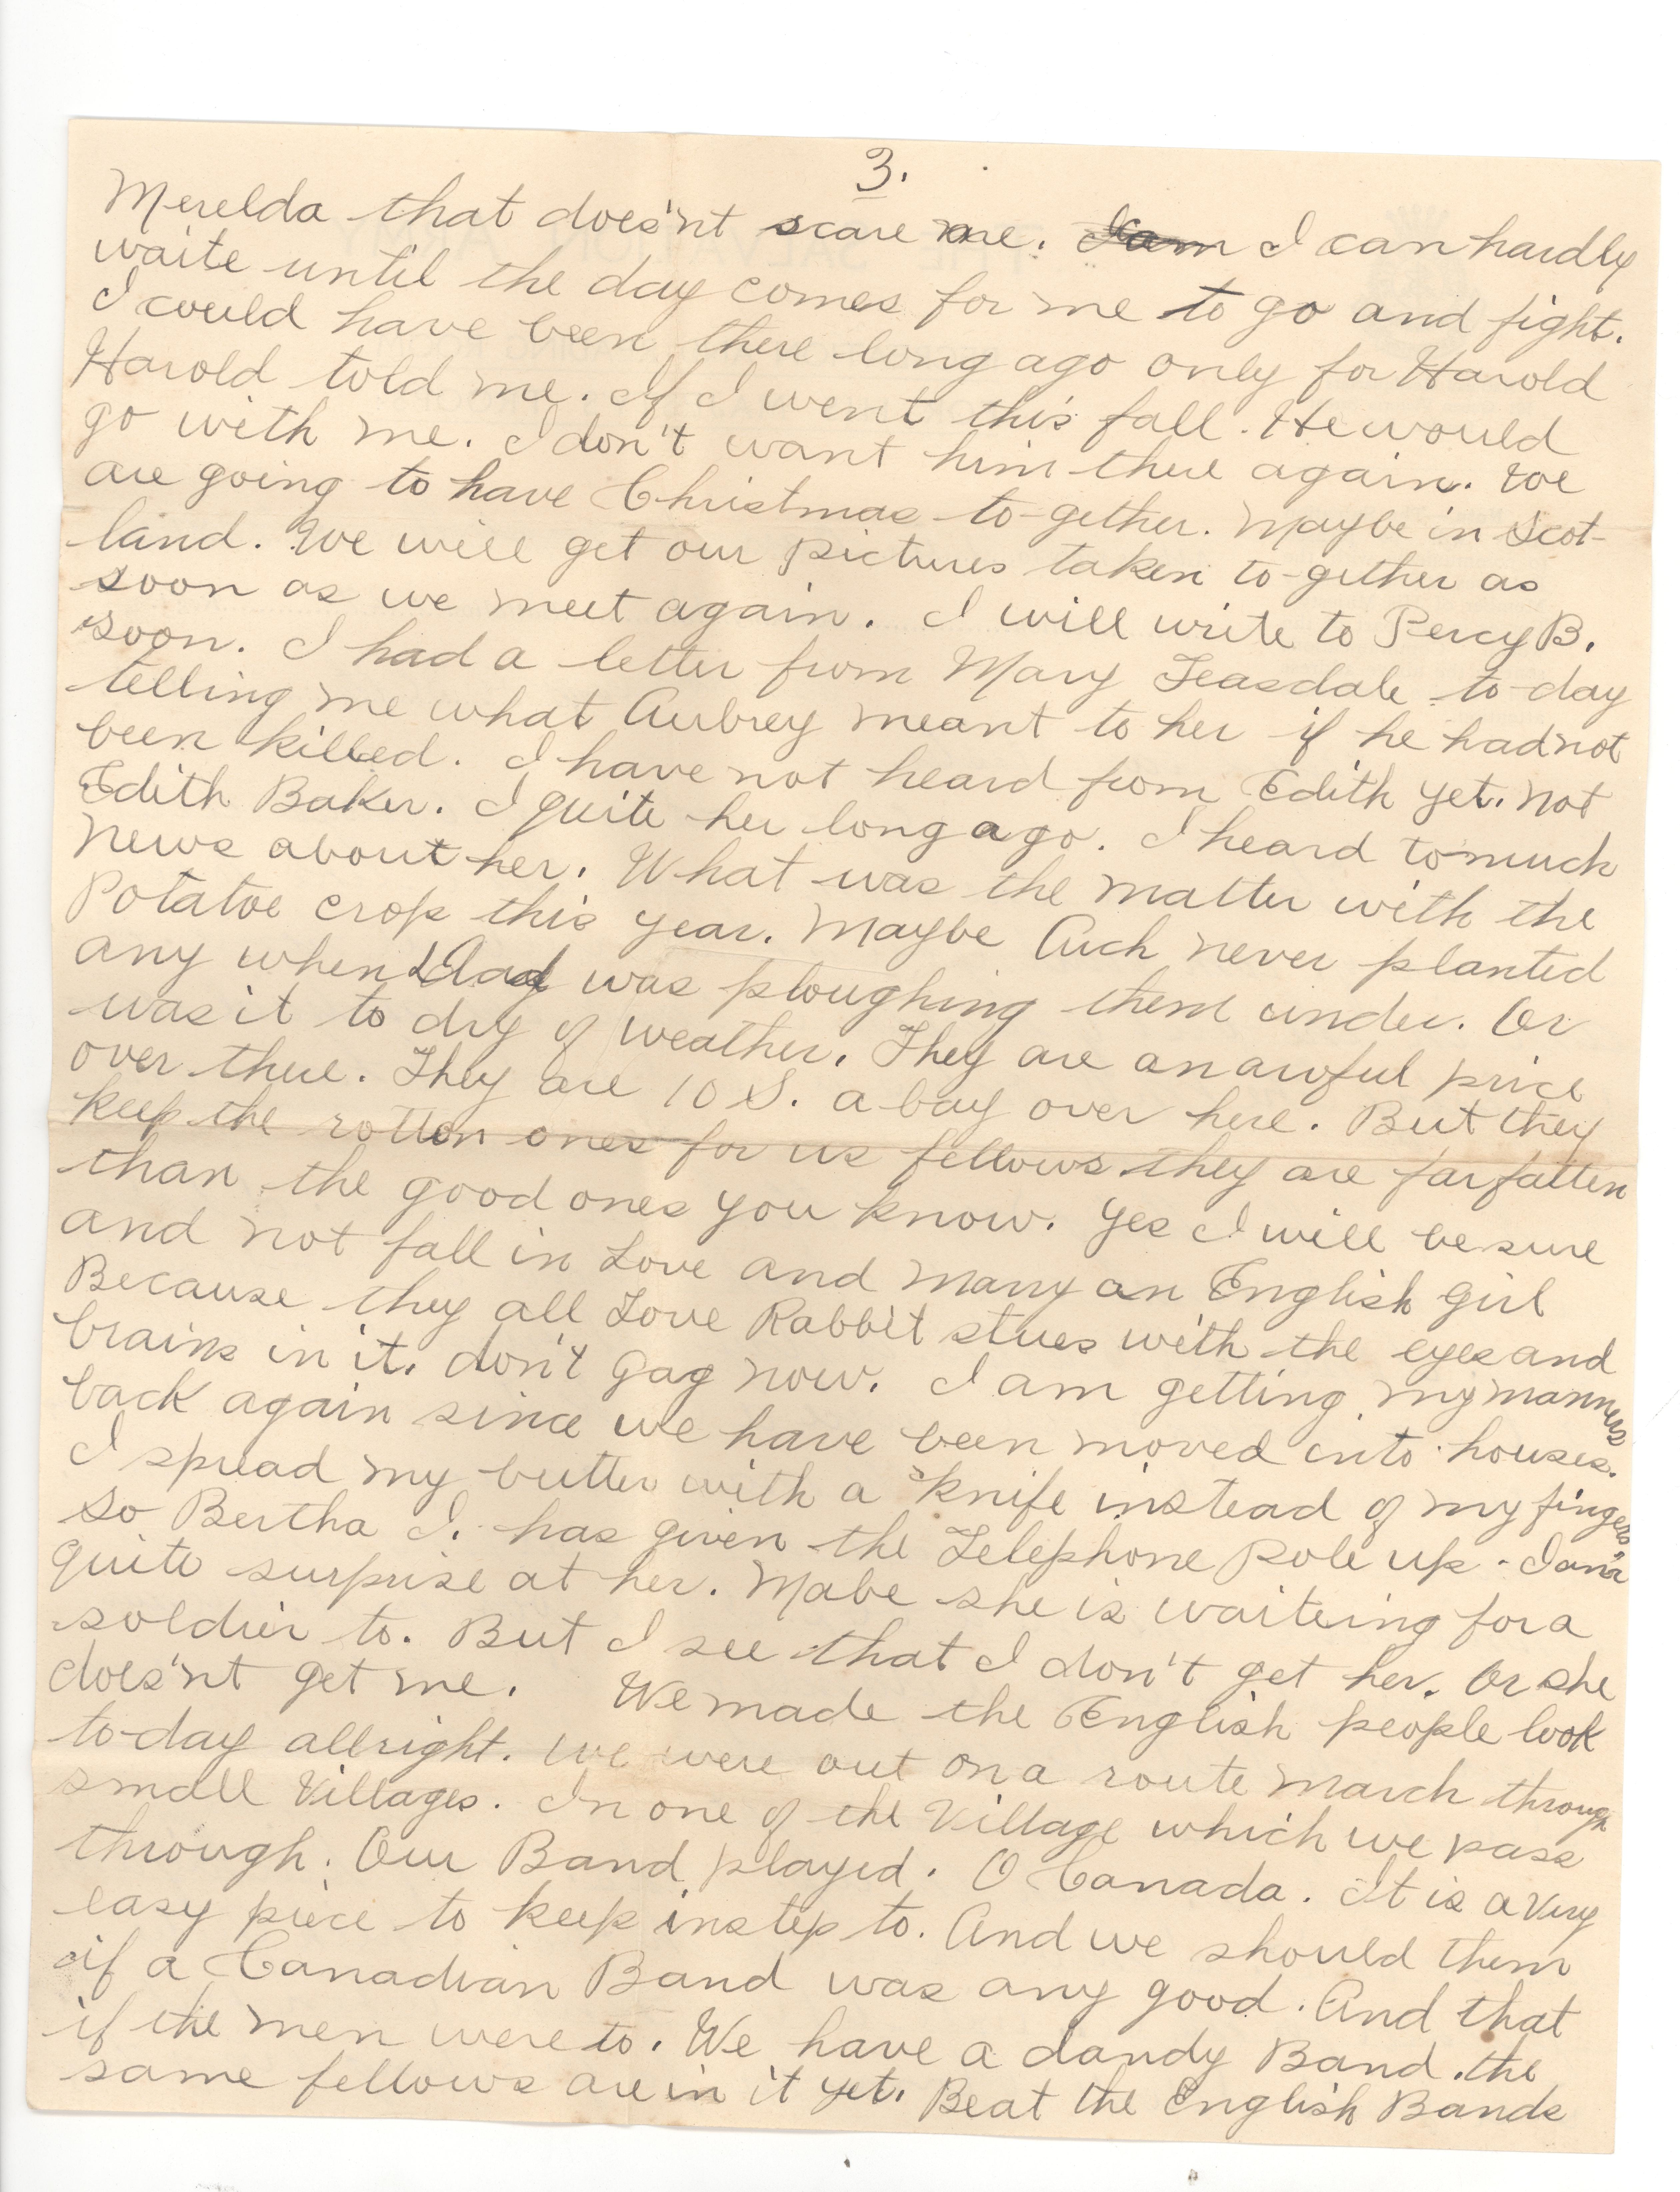 3.
Merelda that does'nt scare me. I am I can hardly
waite until the day comes for me to go and fight.
I could have been there long ago only for Harold
Harold told me. If I went this fall. He would
go with me. I don't want him there again. We
are going to have Christmas to-gether. Maybe in Scot-
land. We will get our pictures taken to-gether as
soon as we meet again. I will write to Percy B.
soon. I had a letter from Mary Teasdale to-day
telling me what Aubrey meant to her if he had not
been killed. I have not heard from Edith yet. not
Edith Baker. I quite her long ago. I heard to much
news about her. What was the matter with the
Potatoe crop this year. Maybe Auch never planted
any when Dad was ploughing them under. Or
was it to dry of weather. They are an awful price
over there. They are 10 S. a bag over here. But they
keep the rotten ones for us fellows they are far fatten
than the good ones you know. Yes I will be sure
and not fall in Love and marry an English girl
Because they all Love Rabbit stues with the eyes and
brains in it. don't gag now. I am getting my manners
back again since we have been moved into houses.
I spread my butter with a knife instead of my fingers.
So Bertha I. has given the Telephone Pole up. I am
quite surprise at her. Mabe she is waitering for a
soldier to. But I see that I don't get her. Or she
does'nt get me. We made the English people look
to-day allright. We were out on a route march through
small Villages. In one of the Village which we pass
through. Our Band played. O Canada. It is a very
easy piece to keep instep to. And we should them
if a Canadian Band was any good. And that
if the men were to. We have a dandy Band. the
same fellows are in it yet. Beat the English Bands